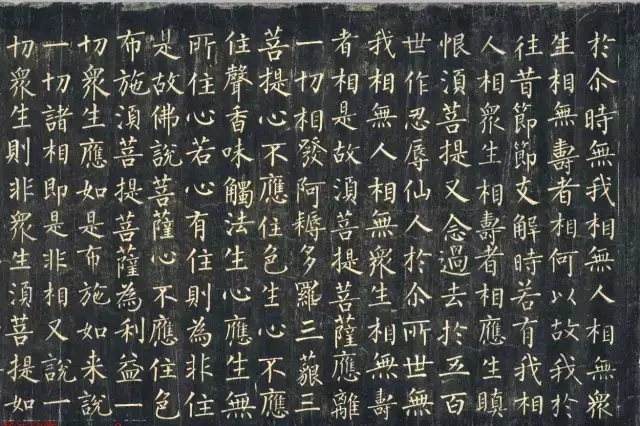 於尒時無我相無人相無衆
生相無壽者相何以故我於
往昔節節支解時若有我相
人相衆生相壽者相應生瞋
恨湏菩提又念過去於五百
世作忍辱仙人於尒所世無
我相無人相無衆生相無壽
者相是故湏菩提菩薩應離
一切相發阿耨多羅三藐三
菩提心不應住色生心不應
住聲香味觸法生心應生無
所住心若心有住則為非住
是故佛說菩薩心不應住色
布施湏菩提菩薩為利益一
切衆生應如是布施如来說
一切諸相即是非相又說一
切衆生則非衆生湏菩提如